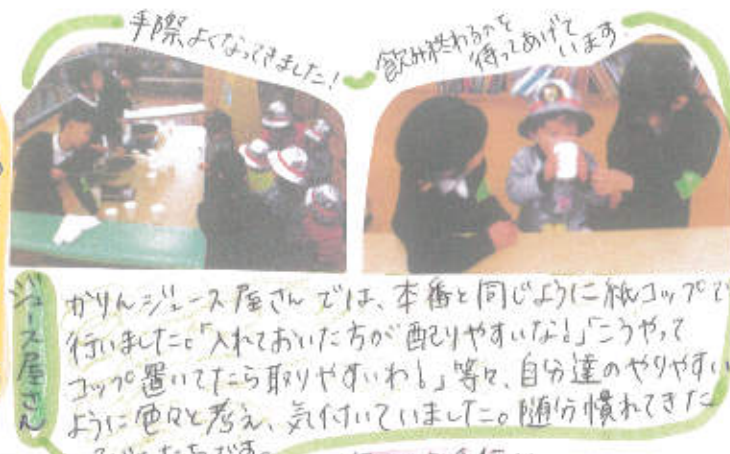 手際よくなってきました!
飲み終わるのを
待ってあげて
います
ジュース屋さん
かりんジュース屋さんでは、本番と同じように紙コップで
行いました。「入れておいた方が配りやすいな!」「こうやって
コップ置いてたら取りやすいわ!」等々、自分達のやりやすい
ように色々と考え、気付いていました。随分慣れてきた